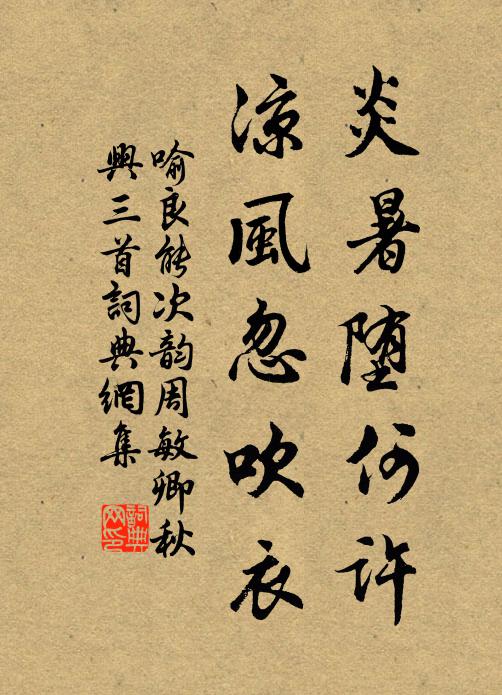 炎暑堕何許
涼風忽吹衣
喻良能次韵周敏卿秋
興三首詞典網集
詞典网印